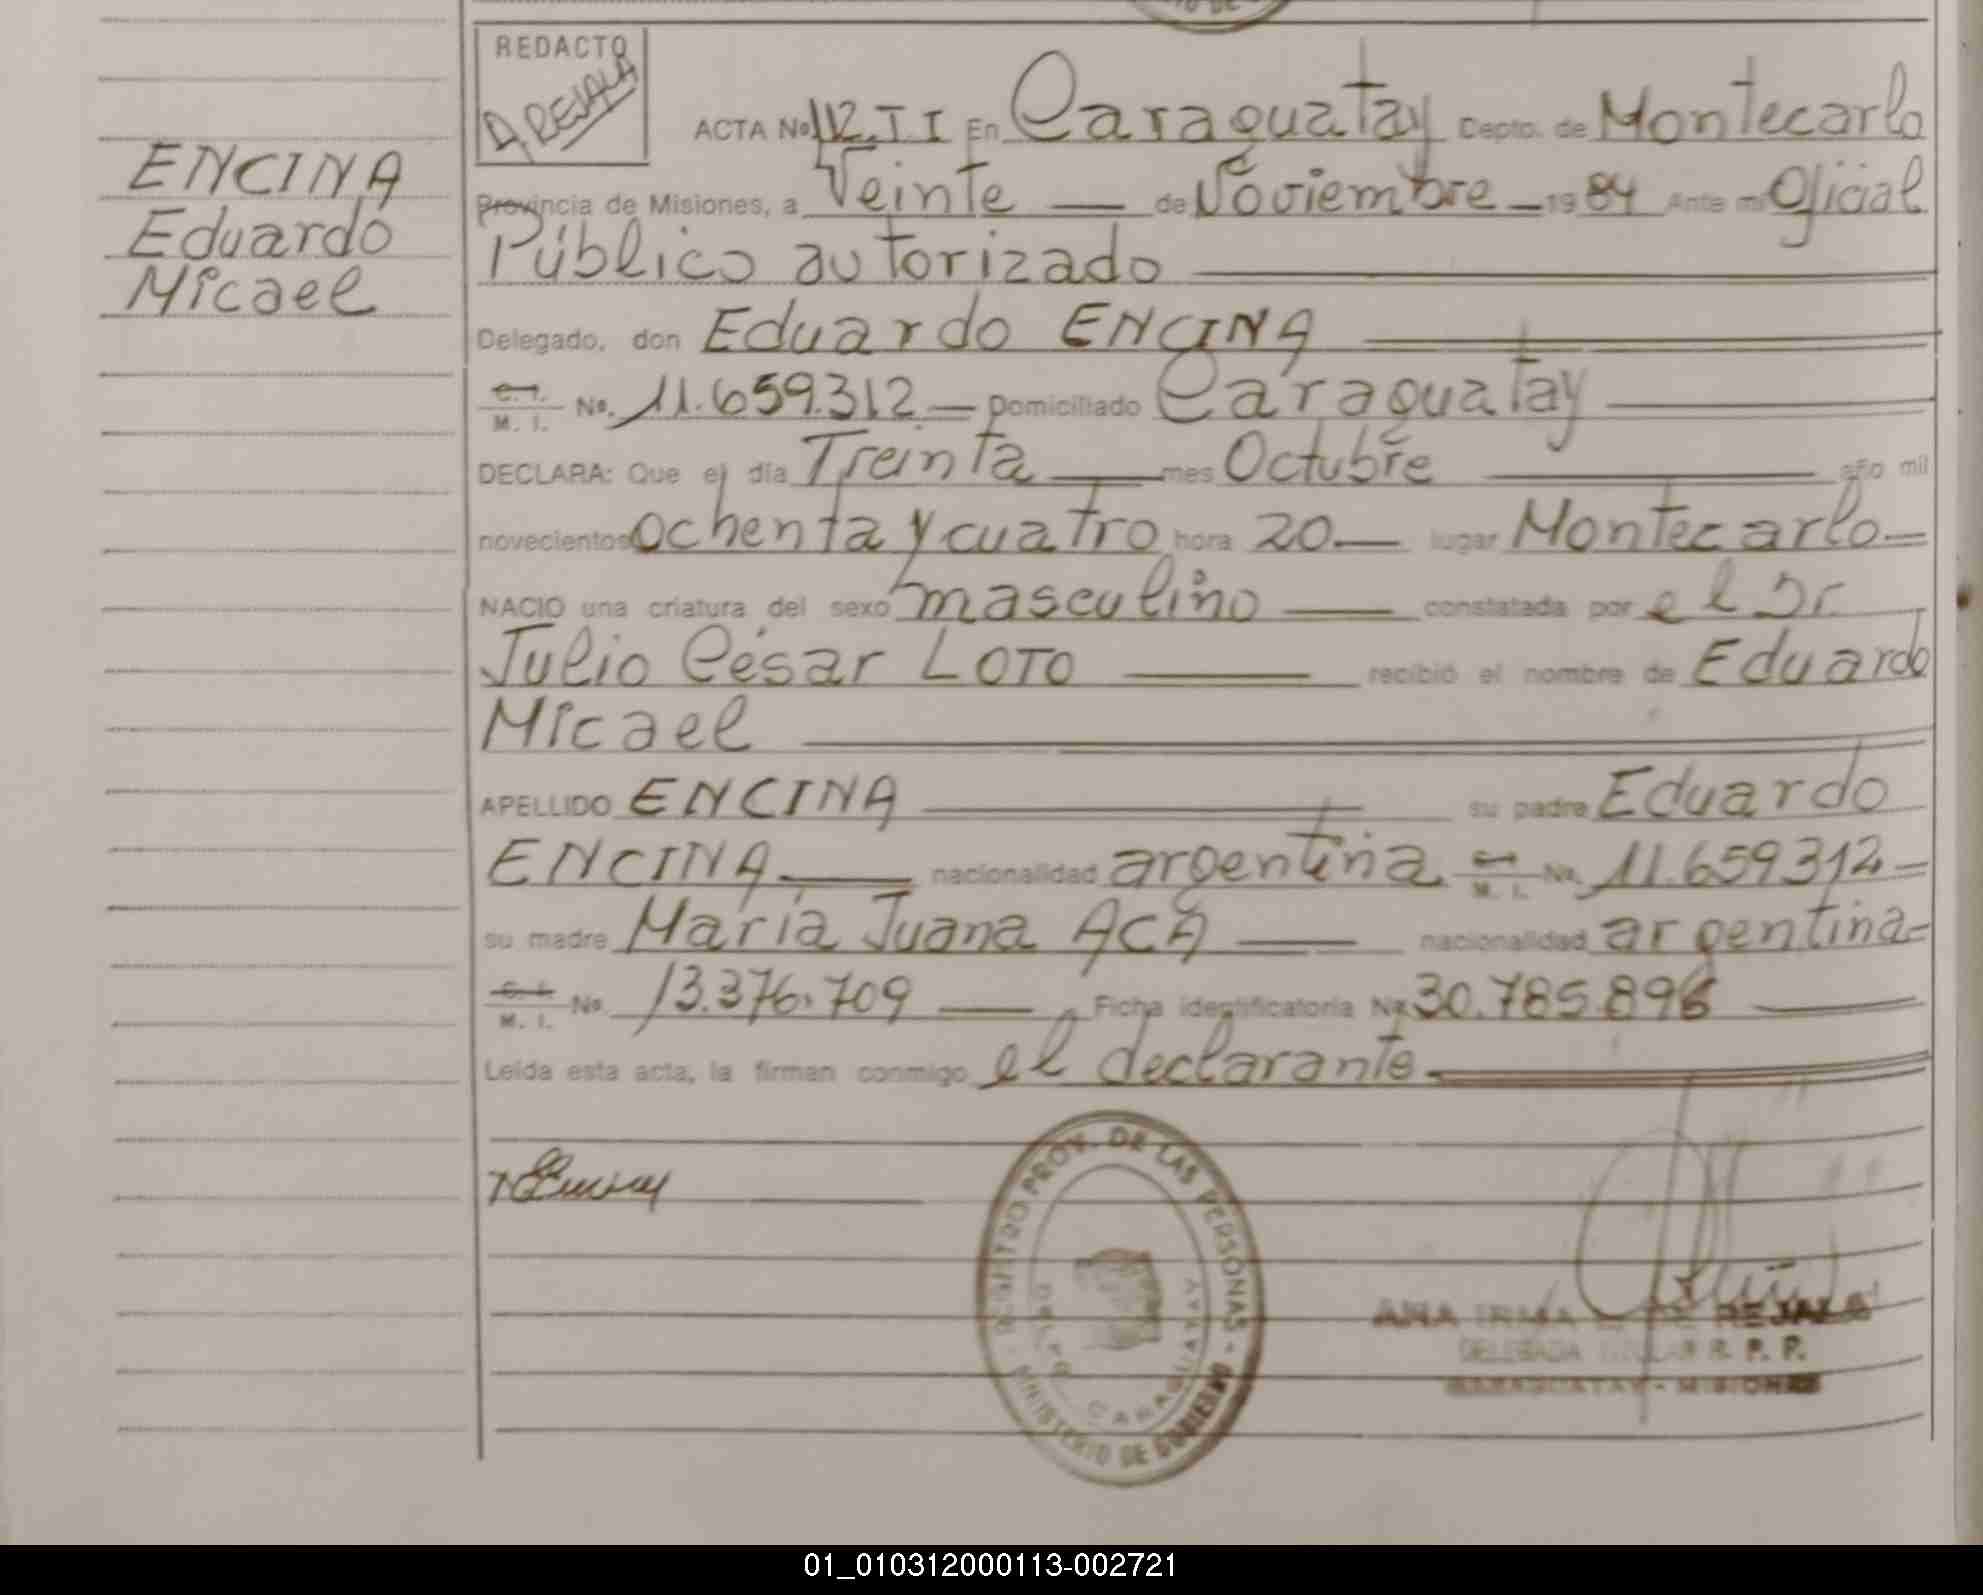 REDACTO
A REJALA
ENCINA
Eduardo
Micael
ACTA No 112. T I En Caraguatay Depto. de Montecarlo
Provincia de Misiones, a Veinte — de Noviembre — 1984 Ante mi Oficial
Público autorizado
Delegado, don Eduardo ENCINA
C. I. / M. I. No. 11.659.312 — Domiciliado Caraguatay
DECLARA: Que el día Treinta — mes Octubre — año mil
novecientos ochenta y cuatro hora 20 — lugar Montecarlo —
NACIO una criatura del sexo masculino — constatada por el Dr
Julio César LOTO — recibió el nombre de Eduardo
Micael
APELLIDO ENCINA — su padre Eduardo
ENCINA — nacionalidad argentina C. I. / M. I. No. 11.659312 —
su madre María Juana ACÁ — nacionalidad argentina —
C. I. / M. I. No. 13.376.709 — Ficha identificatoria No 30.785.896 —
Leída esta acta, la firman conmigo el declarante.
REGISTRO PROV. DE LAS PERSONAS - MINISTERIO DE GOBIERNO
DELEG. CARAGUATAY
ANA IRMA DE REJALA
DELEGADA TITULAR R. P. P.
CARAGUATAY - MISIONES
01_010312000113-002721